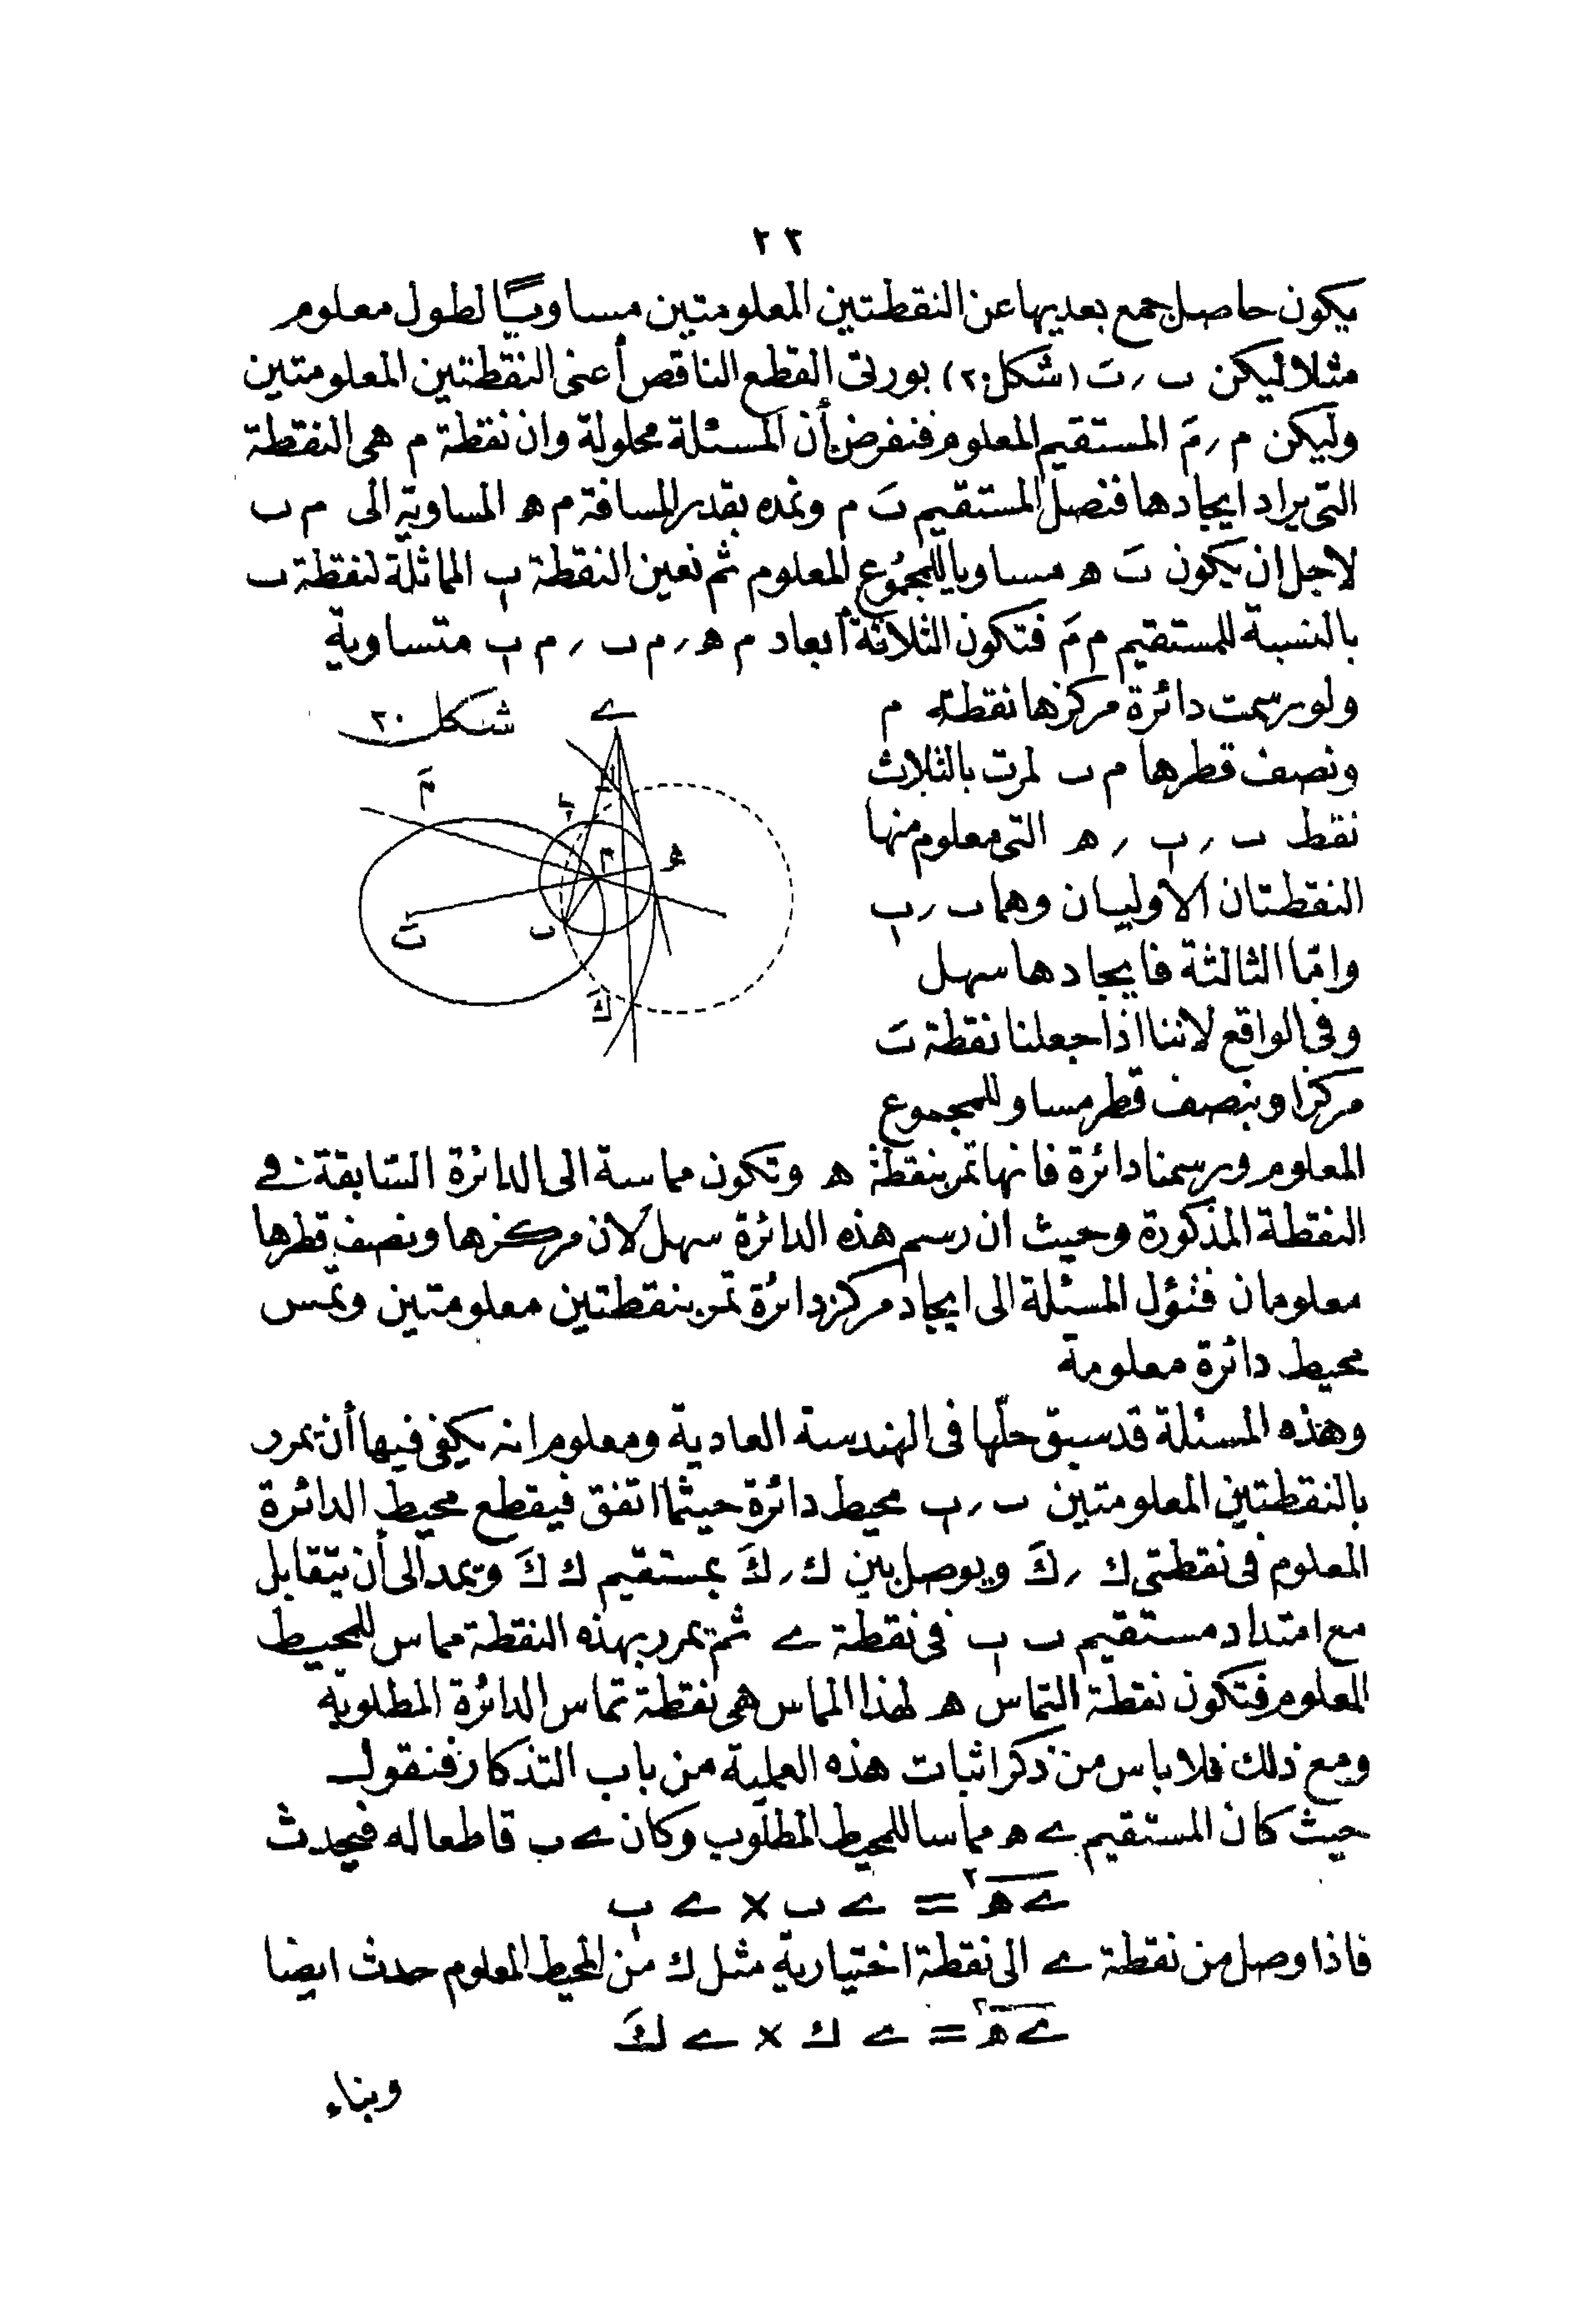 ٢٣
يكون حاصل جمع بعديها عن النقطتين المعلومتين مساويًا لطول معلوم
مثلا ليكن ب ر بَ (شكل ٢٠) بورتى القطع الناقص أعنى النقطتين المعلومتين
وليكن م ر مَ المستقيم المعلوم فنفرض أن المسئلة محلولة وان نقطة م هى النقطة
التى يراد ايجادها فنصل المستقيم بَ م ونمده بقدر المسافة م ه المساوية الى م ب
لاجل ان يكون بَ ه مساويا للمجموع المعلوم ثم نعين النقطة ب المماثلة لنقطة ب
بالنسبة للمستقيم م مَ فتكون الثلاثة أبعاد م ه ر م ب ر م ب متساوية
ولو رسمت دائرة مركزها نقطة م
شكل ٢٠
ے
مَ
م
ه
بَ
ب
كَ
ونصف قطرها م ب لمرت بالثلاث
نقط ب ر ب ر ه التى معلوم منها
النقطتان الاوليان وهما ب ر ب
وامّا الثالثة فايجادها سهل
وفى الواقع لاننا اذا جعلنا نقطة بَ
مركزا وبنصف قطر مساو للمجموع
المعلوم ورسمنا دائرة فانها تمر بنقطة ه وتكون مماسة الى الدائرة السّابقة فى
النقطة المذكورة وحيث ان رسم هذه الدائرة سهل لان مركزها ونصف قطرها
معلومان فتؤل المسئلة الى ايجاد مركز دائرة تمر بنقطتين معلومتين وتمس
محيط دائرة معلومة
وهذه المسئلة قد سبق حلّها فى الهندسة العادية ومعلوم انه يكفى فيها أن يمرر
بالنقطتين المعلومتين ب ر ب محيط دائرة حيثما اتفق فيقطع محيط الدائرة
المعلوم فى نقطتى ك ر كَ ويوصل بين ك ر كَ بمستقيم ك كَ ويمد الى أن يتقابل
مع امتداد مستقيم ب ب فى نقطة ے ثم يمرر بهذه النقطة مماس للمحيط
المعلوم فتكون نقطة التماس ه لهذا المماس هى نقطة تماس الدائرة المطلوبة
ومع ذلك فلا باس من ذكر اثبات هذه العملية من باب التذكار فنقول
حيث كان المستقيم ے ه مماسا للمحيط المطلوب وكان ے ب قاطعا له فيحدث
ے ه٢ = ے ب × ے ب
فاذا وصل من نقطة ے الى نقطة اختيارية مثل ك من المحيط المعلوم حدث ايضا
ے ه٢ = ے ك × ے كَ
وبناء